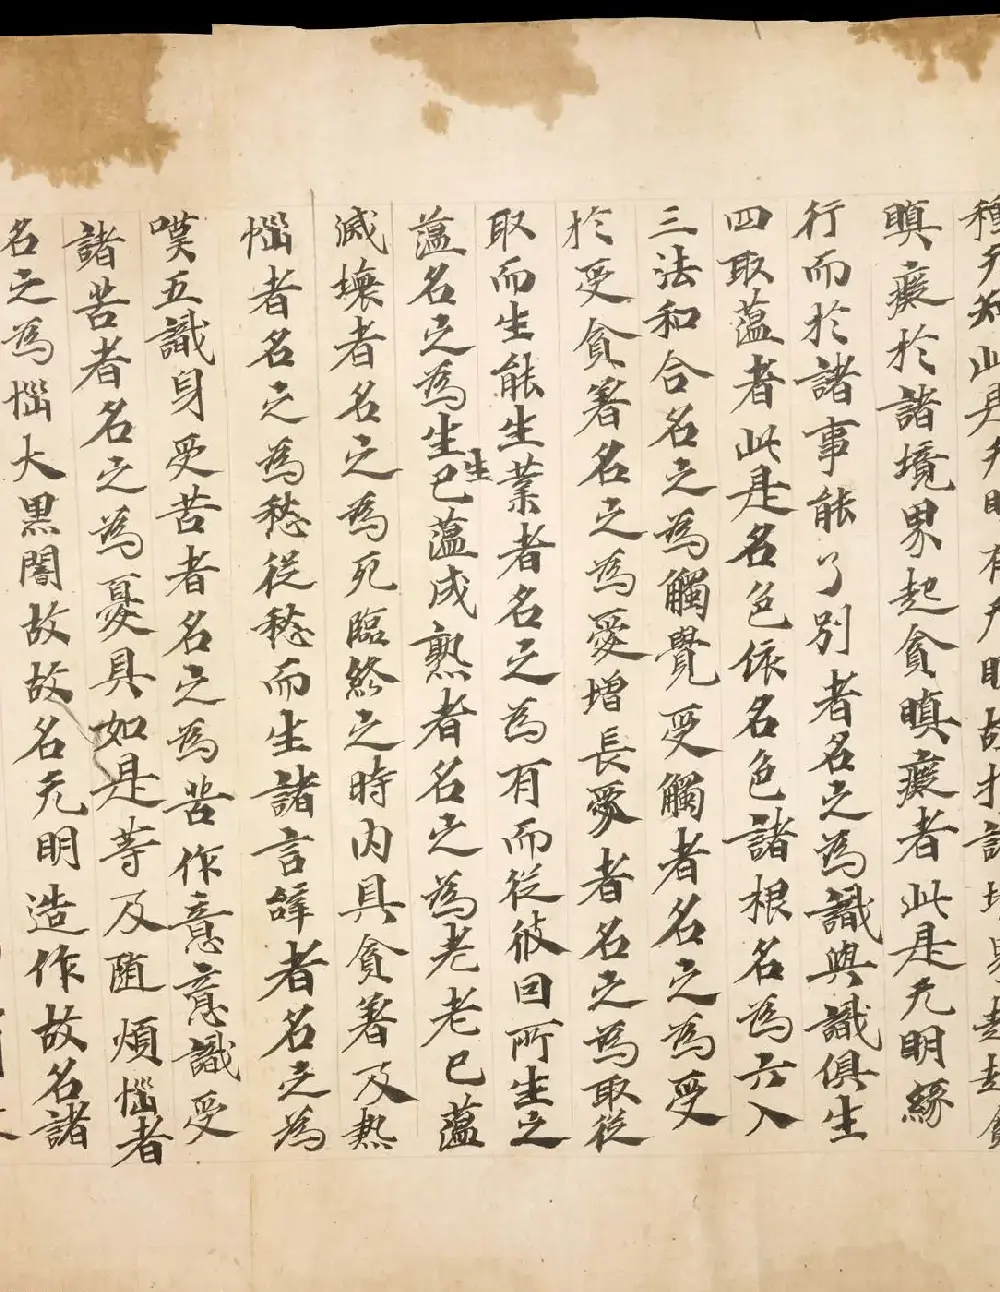 種无知此是无明有无明故於諸境界起貪
瞋癡於諸境界起貪瞋癡者此是无明緣
行而於諸事能了別者名之為識與識俱生
四取蘊者此是名色依名色諸根名為六入
三法和合名之為觸覺受觸者名之為受
於受貪著名之為愛增長愛者名之為取從
取而生能生業者名之為有而從彼因所生之
蘊名之為生生已蘊成熟者名之為老老已蘊
滅壞者名之為死臨終之時內具貪著及熱
惱者名之為愁從愁而生諸言辝者名之為
嘆五識身受苦者名之為苦作意意識受
諸苦者名之為憂具如是等及隨煩惱者
名之為惱大黒闇故故名无明造作故名諸